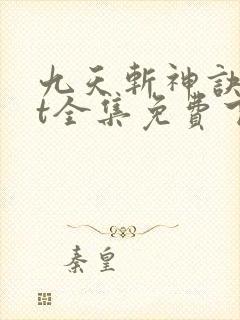 九天斬神訣
t全集免費
秦皇